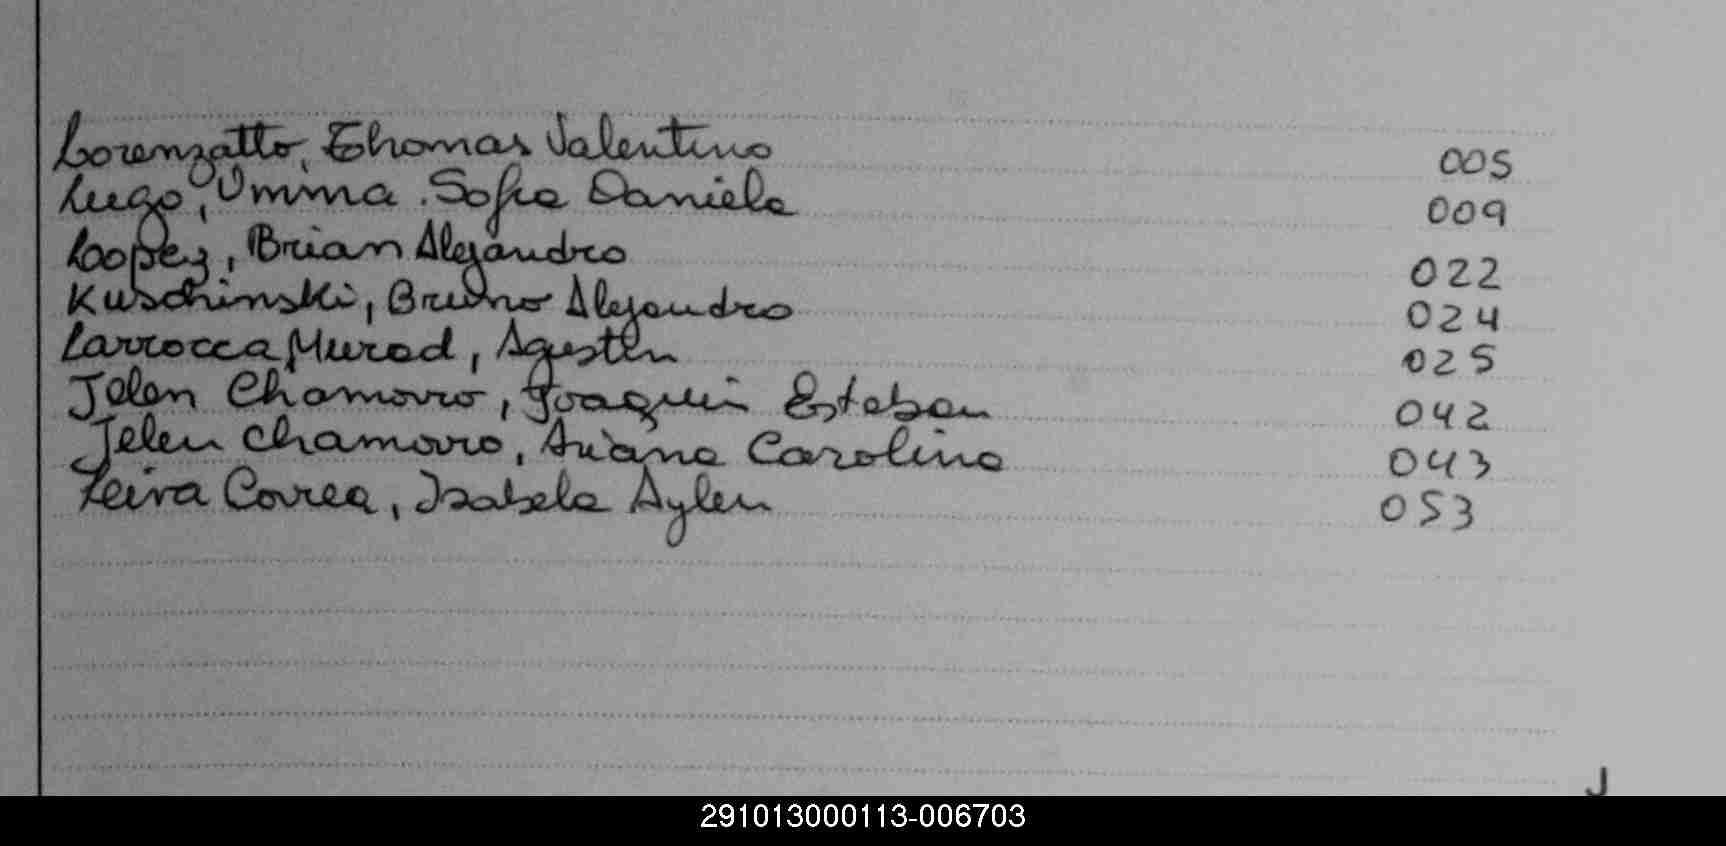 Lorenzatto, Thomas Valentino 005
Lugo, Umma Sofia Daniela 009
Lopez, Brian Alejandro 022
Kuschinski, Bruno Alejandro 024
Larrocca Murad, Agustin 025
Jelen Chamorro, Joaquin Esteban 042
Jelen Chamorro, Ariana Carolina 043
Leiva Correa, Isabela Aylen 053
J
291013000113-006703